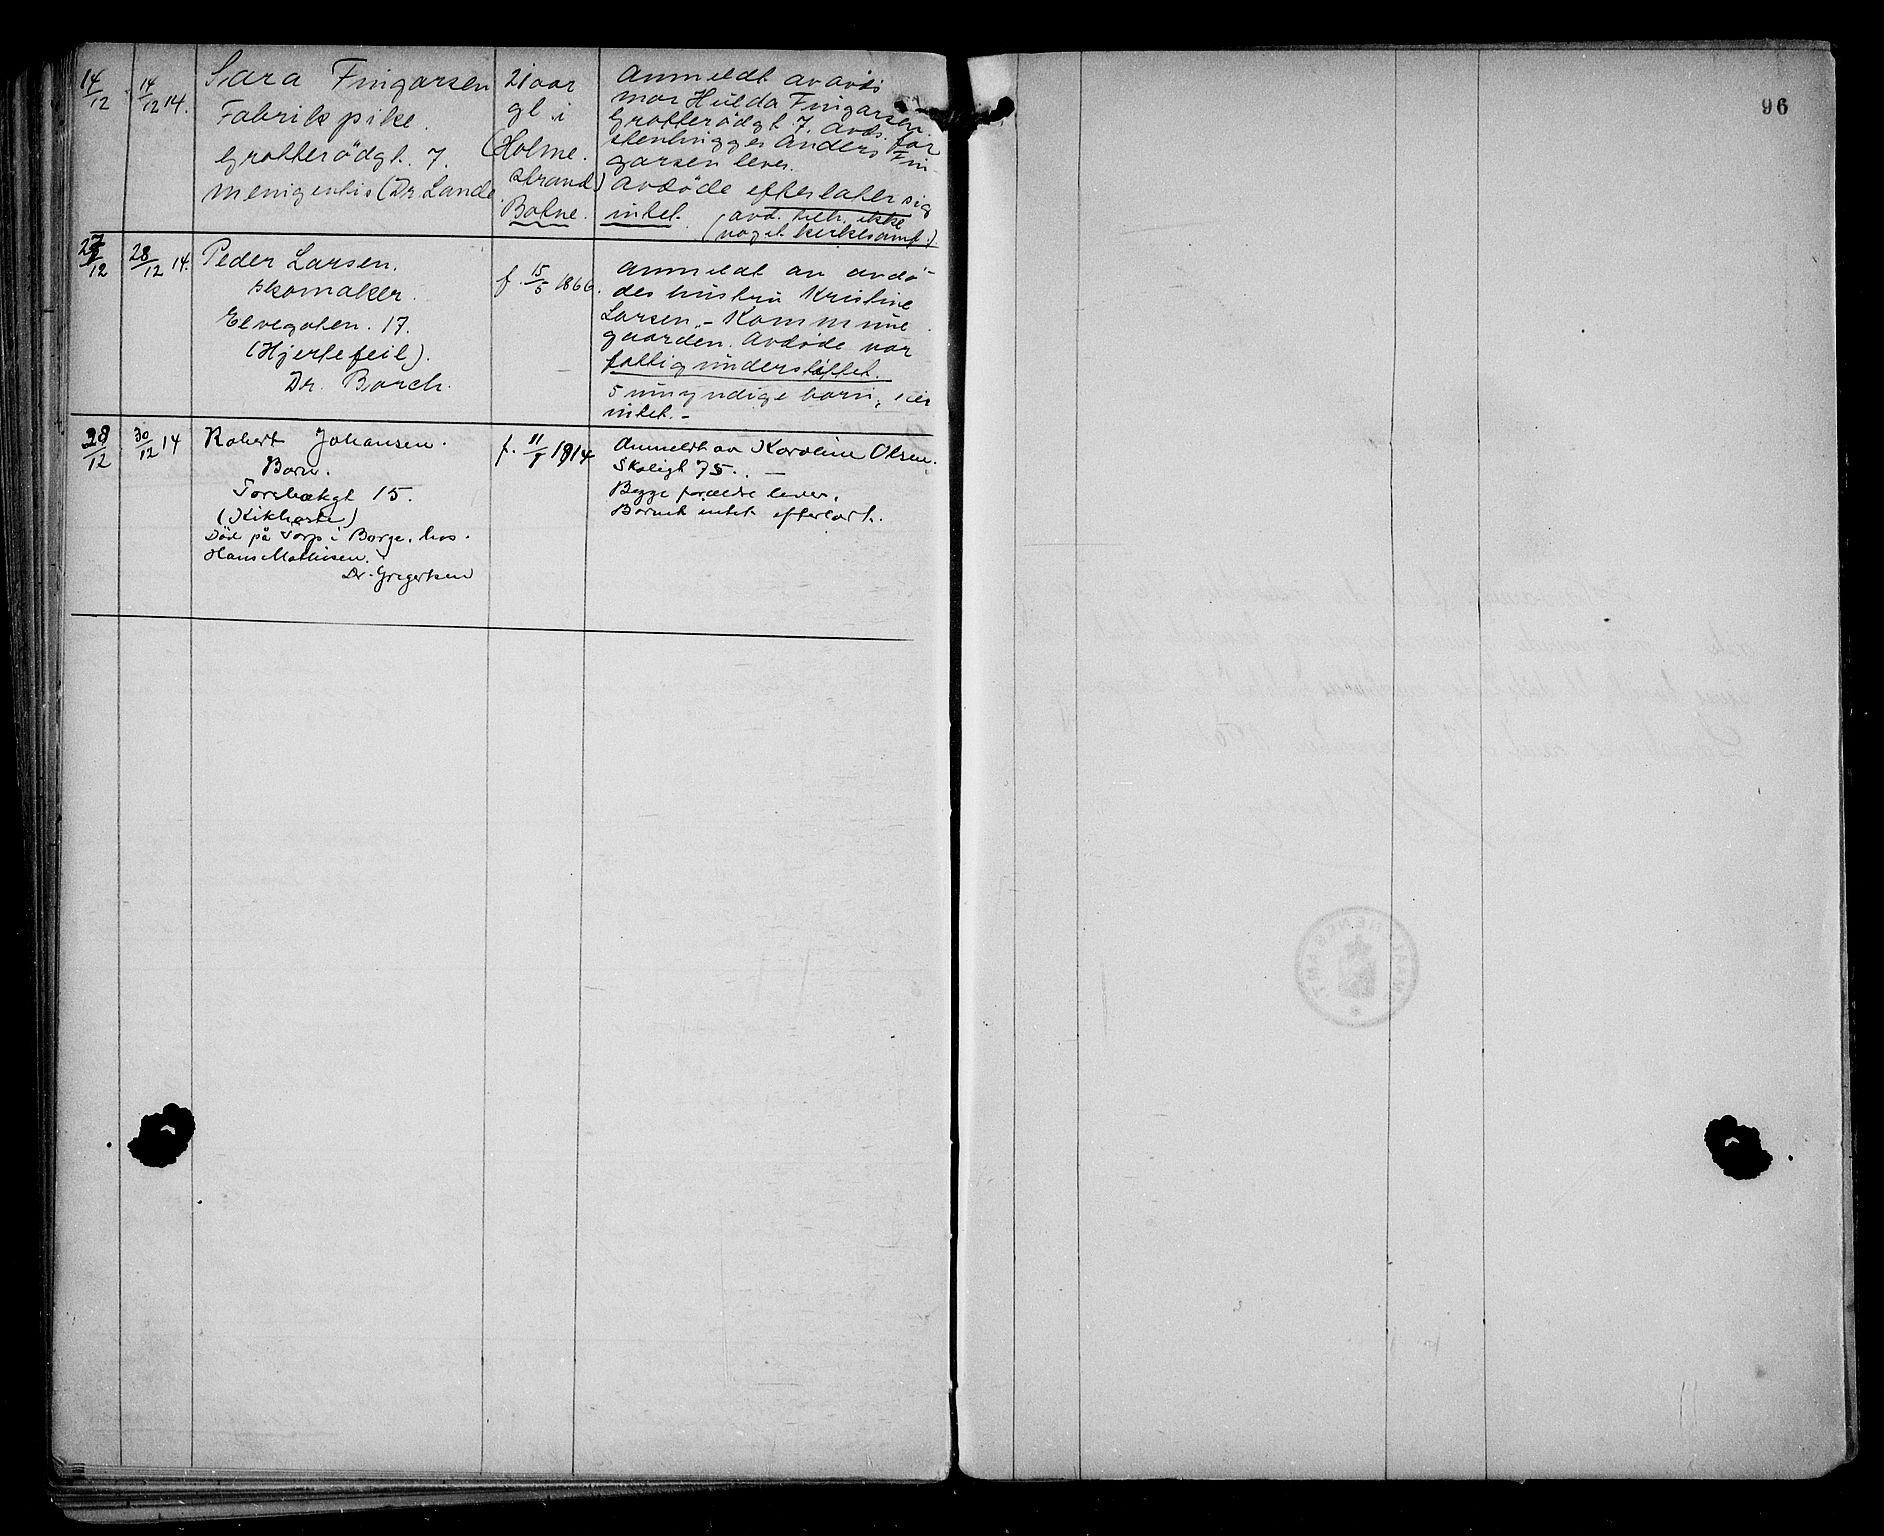 14/12
14/12 14.
Sara Fingarsen
Fabrikpike.
Grotterødgt. 7.
menigentis (Dr. Lande
21 aar
gl. i
(Holme.
strand)
Botne.
Anmeldt av avds
mor Hulda Fingarsen.
Grotterødgt 7. Avds. far
stenhugger Anders Fin-
garsen lever.
Avdøde efterlater sig
intet.
(avd. tilh. ikke
noget kirkesamf.)
27/12
28/12 14.
Peder Larsen.
skomaker.
Elvegaten. 17.
(Hjertefeil).
Dr. Borch.
f. 15/5 1866.
Anmeldt av avdø-
des hustru Kristine
Larsen, - Kommune
gaarden. Avdøde var
fattigunderstøttet.
5 umyndige barn, eier
intet. -
28/12
30/12 14
Robert Johansen.
Barn.
Torsbækgt 15.
(Kikhoste)
Död på Torp i Borge, hos.
Hans Mathisen.
Dr. Gregertsen
f. 11/8 1914
Anmeldt av Karoline Olsen.
Skoligt 75. -
Begge forældre lever,
Barnet intet efterlatt.
96